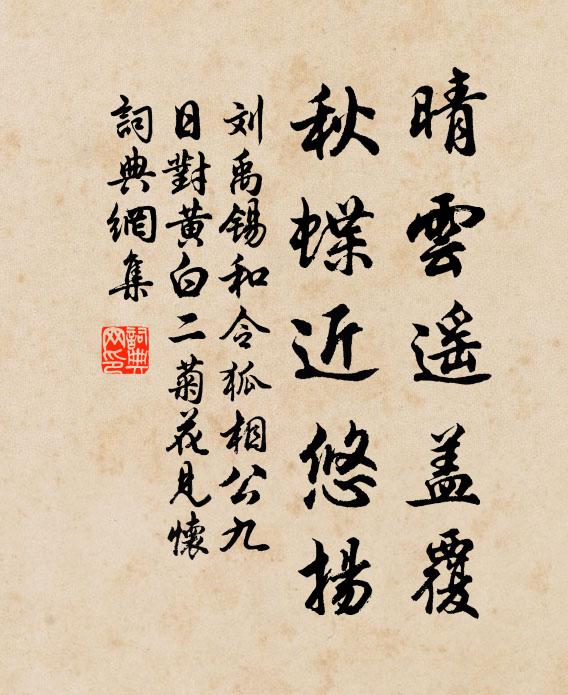 晴雲遥盖覆
秋蝶近悠揚
刘禹锡和令狐相公九
日對黄白二菊花見懷
詞典網集
詞典网印